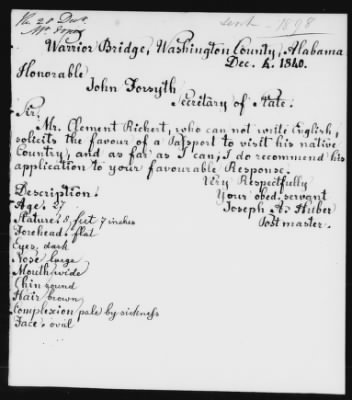 Warrior Bridge, Washington County, Alabama
Dec. 4. 1840.
Honorable
John Forsyth
Secretary of State.
Sir,
Mr. Clement Richert, who can not write English,
solicits the favour of a Passport to visit his native
Country, and as far as I can, I do recommend his
application to your favourable Response.
Very Respectfully
Your obed. servant
Joseph A. Huber
Postmaster.
Description.
Age. 27
Stature. 8 feet 7 inches
Forehead. flat
Eyes, dark
Nose large
Mouth wide
Chin round
Hair brown
Complexion pale by sickness
Face. oval